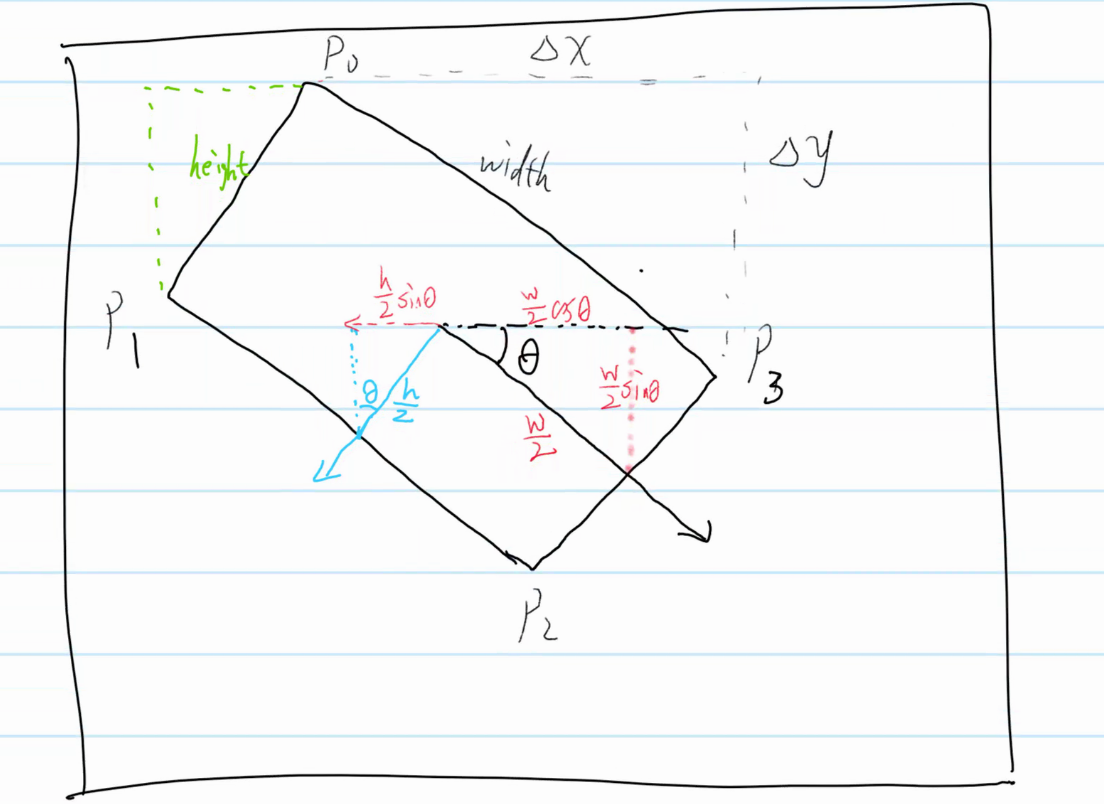 P0 ΔX
height width ΔY
P1 h/2 sinθ w/2 cosθ P3
θ h/2 θ w/2 sinθ
w/2
P2